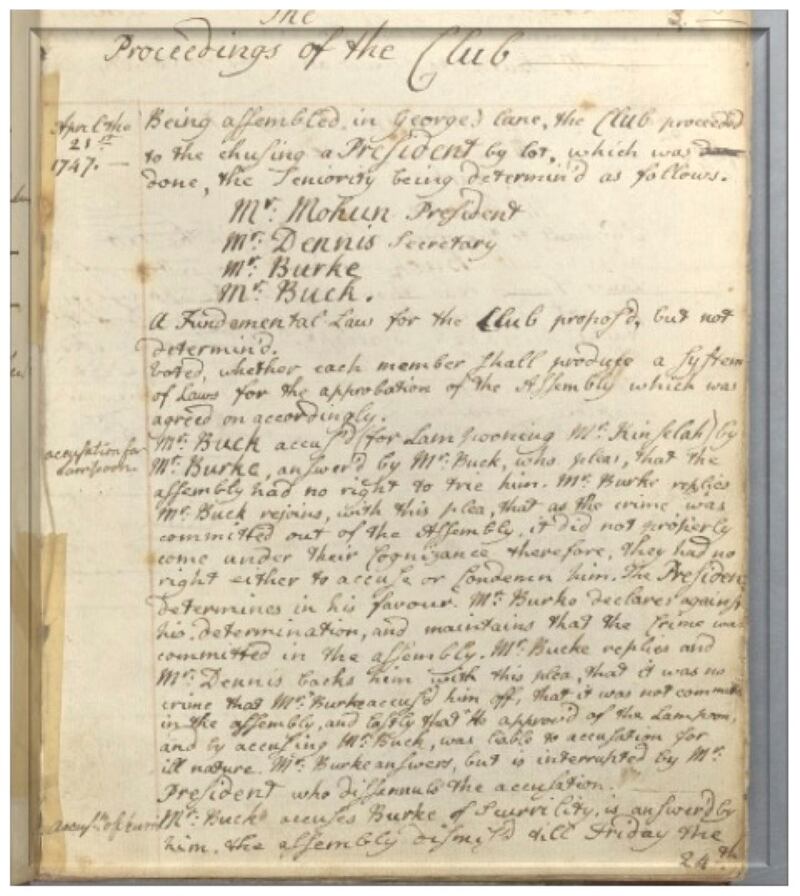 The
3.
Proceedings of the Club
April the
21st
1747.
Being assembled in Georges lane, the Club proceeded
to the chusing a President by lot, which was
done, the Seniority being determin'd as follows.
Mr. Mohun President
Mr. Dennis Secretary
Mr. Burke
Mr. Buck.
A Fundemental Law for the Club propos'd, but not
determin'd.
Voted, whether each member shall produce a system
of Laws for the approbation of the Assembly which was
agreed on accordingly.
accusation for
Lampoon.
Mr. Buck accus'd (for Lampooning Mr. Kinselah) by
Mr. Burke, answer'd by Mr. Buck, who pleas, that the
assembly had no right to trie him. Mr. Burke replies
Mr. Buck rejoins, with this plea, that as the crime was
committed out of the Assembly, it did not properly
come under their Cognizance therefore, they had no
right either to accuse or Condemn him. The President
determines in his favour. Mr. Burke declares against
his determination, and maintains that the Crime was
committed in the assembly. Mr. Bucke replies and
Mr. Dennis backs him with this plea, that it was no
crime that Mr. Burke accus'd him off, that it was not
in the assembly, and lastly that he approv'd of the Lampoon,
and by accusing Mr. Buck, was liable to accusation for
ill nature. Mr. Burke answers, but is interrupted by Mr.
President who disannuls the accusation.
Mr. Buck accuses Burke of Scurrility, is answer'd by
him. the assembly dismis'd till Friday the
24th